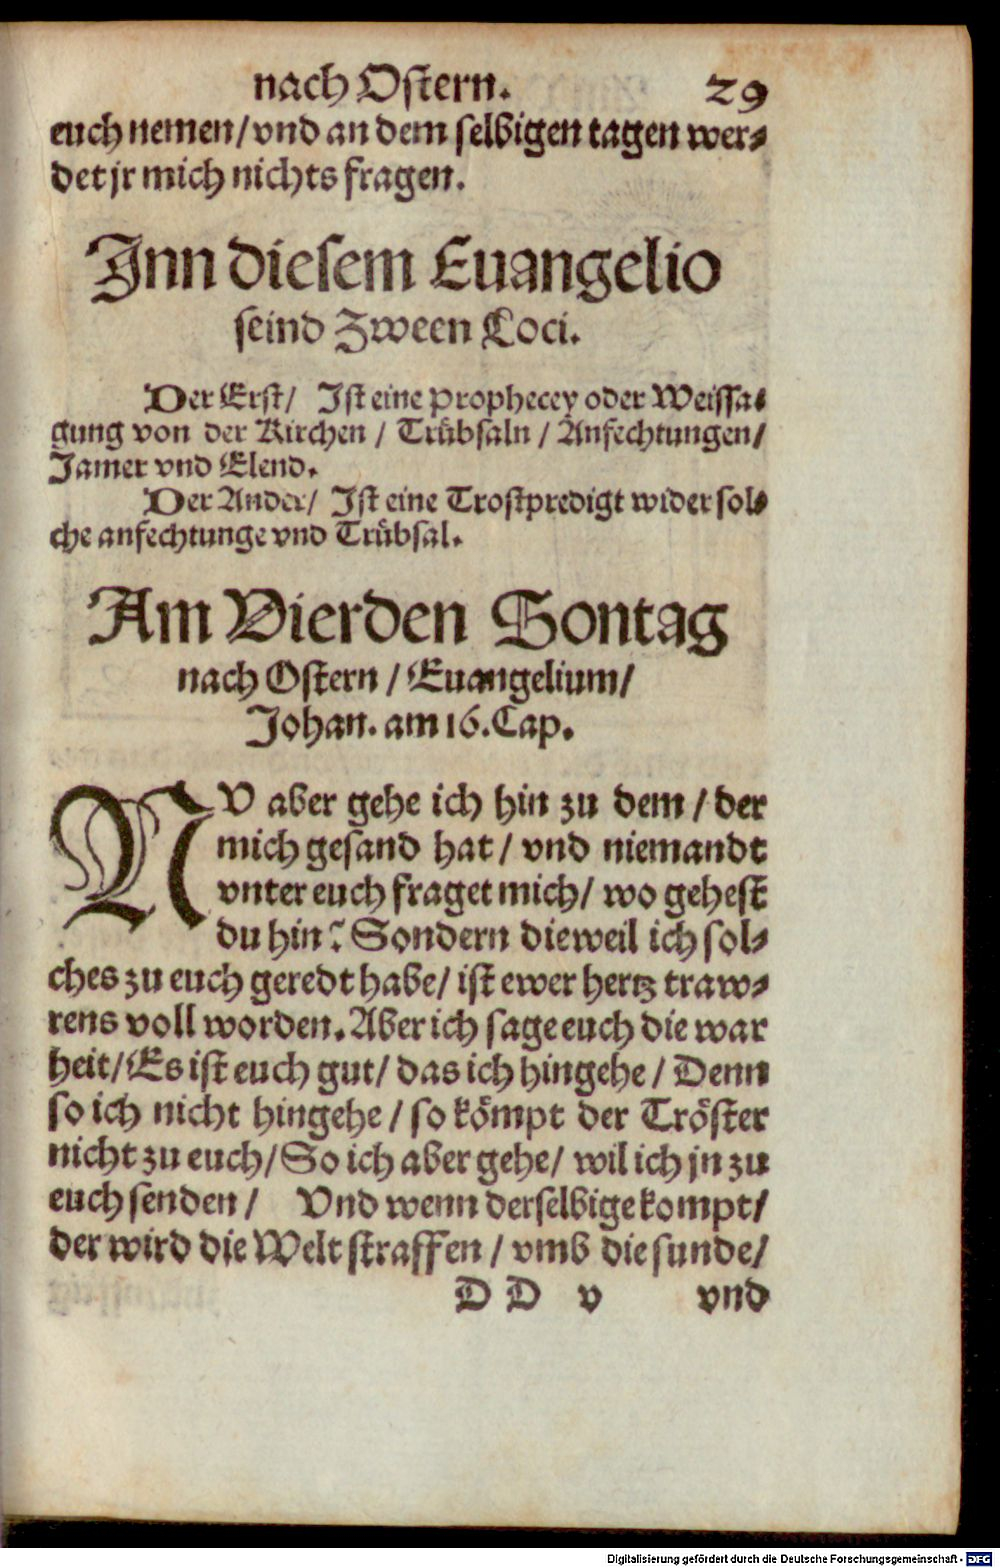 nach Ostern. 29
euch nemen/ vnd an dem selbigen tagen wer⸗
det jr mich nichts fragen.
Inn diesem Euangelio
seind Zween Loci.
Der Erst/ Ist eine prophecey oder Weissa⸗
gung von der Kirchen / Trübsaln / Anfechtungen/
Jamer vnd Elend.
Der Ander/ Ist eine Trostpredigt wider sol⸗
che anfechtunge vnd Trübsal.
Am Vierden Sontag
nach Ostern / Euangelium/
Johan. am 16. Cap.
NV aber gehe ich hin zu dem / der
mich gesand hat / vnd niemandt
vnter euch fraget mich/ wo gehest
du hin? Sondern dieweil ich sol⸗
ches zu euch geredt habe/ ist ewer hertz traw⸗
rens voll worden. Aber ich sage euch die war
heit/ Es ist euch gut/ das ich hingehe / Denn
so ich nicht hingehe / so kömpt der Tröster
nicht zu euch/ So ich aber gehe/ wil ich jn zu
euch senden / Vnd wenn derselbige kompt/
der wird die Welt straffen / vmb die sunde/
D D v vnd
Digitalisierung gefördert durch die Deutsche Forschungsgemeinschaft - DFG